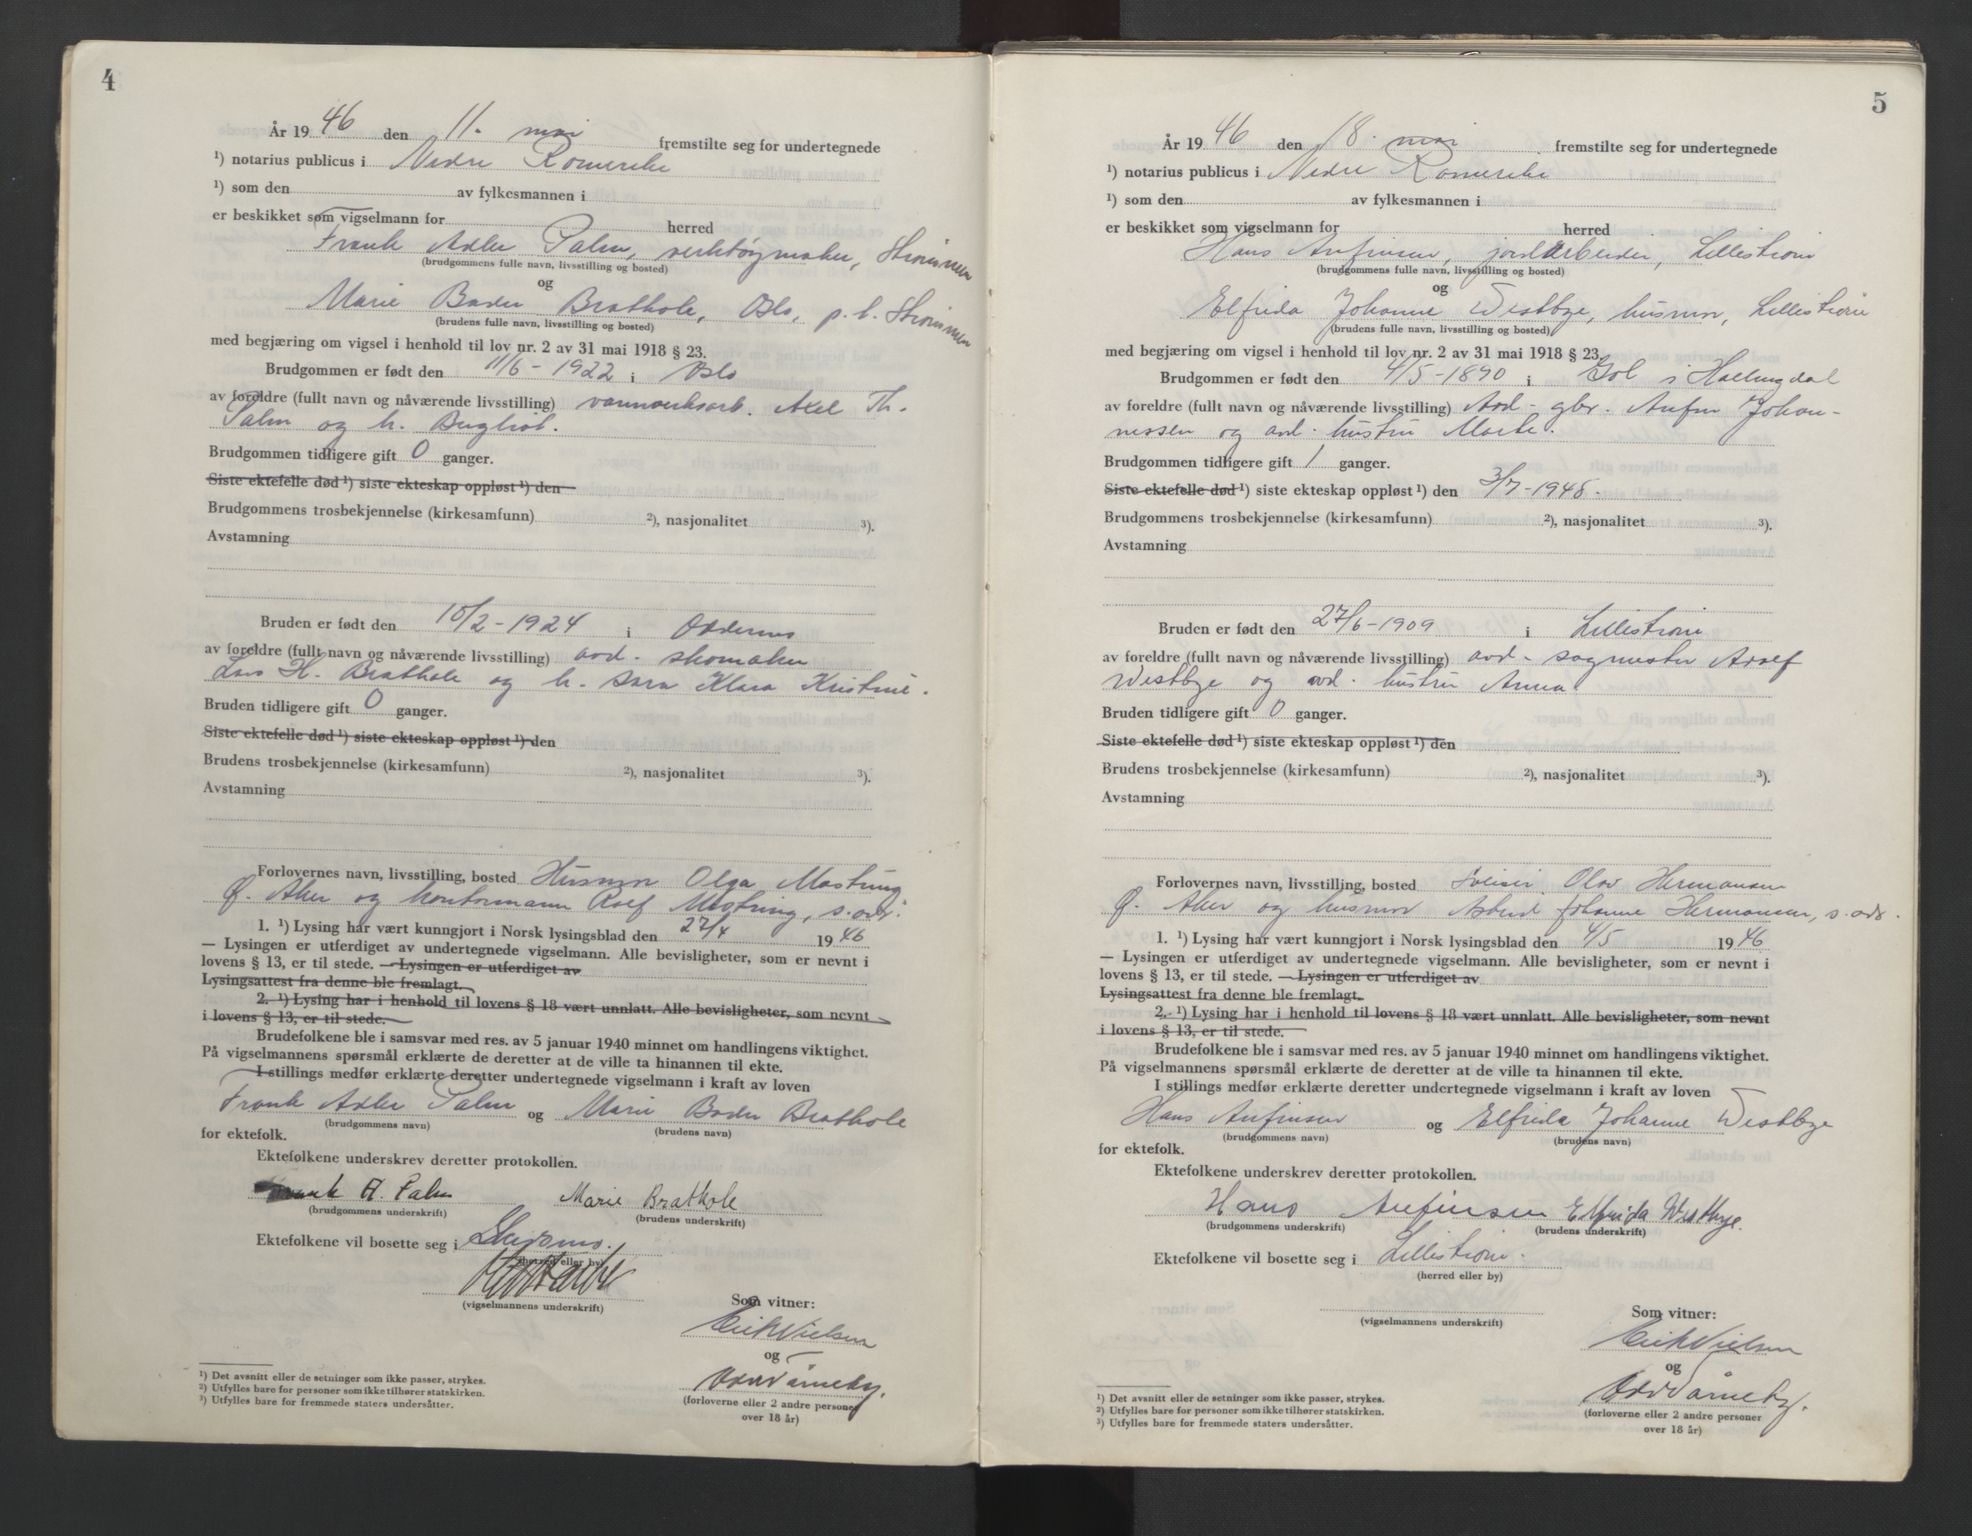 4
År 1946 den 11. mai fremstilte seg for undertegnede
¹) notarius publicus i Nedre Romerike
¹) som den av fylkesmannen i
er beskikket som vigselmann for herred
Frank Adler Palm, verktøymaker, Strømmen
(brudgommens fulle navn, livsstilling og bosted)
og
Marie Bader Brathole, Oslo, p.t. Strømmen
(brudens fulle navn, livsstilling og bosted)
med begjæring om vigsel i henhold til lov nr. 2 av 31 mai 1918 § 23.
Brudgommen er født den 11/6 - 1922 i Oslo
av foreldre (fullt navn og nåværende livsstilling) vannverksarb. Axel Th.
Palm og h.
Brudgommen tidligere gift 0 ganger.
Siste ektefelle død ¹) siste ekteskap oppløst ¹) den
Brudgommens trosbekjennelse (kirkesamfunn) ²), nasjonalitet ³).
Avstamning
Bruden er født den 10/2 - 1924 i Oddernes
av foreldre (fullt navn og nåværende livsstilling) avd. skomaker
Lars H. Brathole og h. Sara Klara Kristine.
Bruden tidligere gift 0 ganger.
Siste ektefelle død ¹) siste ekteskap oppløst ¹) den
Brudens trosbekjennelse (kirkesamfunn) ²), nasjonalitet ³).
Avstamning
Forlovernes navn, livsstilling, bosted Husmor Olga Mastring
Ø. Aker og kontormann Rolf Mastring, s. ads.
1. ¹) Lysing har vært kunngjort i Norsk lysingsblad den 27/4 1946
— Lysingen er utferdiget av undertegnede vigselmann. Alle bevisligheter, som er nevnt i
lovens § 13, er til stede. — Lysingen er utferdiget av
Lysingsattest fra denne ble fremlagt.
2. ¹) Lysing har i henhold til lovens § 18 vært unnlatt. Alle bevisligheter, som nevnt
i lovens § 13, er til stede.
Brudefolkene ble i samsvar med res. av 5 januar 1940 minnet om handlingens viktighet.
På vigselmannens spørsmål erklærte de deretter at de ville ta hinannen til ekte.
I stillings medfør erklærte deretter undertegnede vigselmann i kraft av loven
Frank Adler Palm og Marie Bader Brathole
(brudgommens navn) (brudens navn)
for ektefolk.
Ektefolkene underskrev deretter protokollen.
Frank A. Palm Marie Brathole
(brudgommens underskrift) (brudens underskrift)
Ektefolkene vil bosette seg i Skedsmo.
(herred eller by)
(vigselmannens underskrift)
Som vitner:
Erik Nielsen
og
Odd Tårneby.
(forloverne eller 2 andre personer
over 18 år)
¹) Det avsnitt eller de setninger som ikke passer, strykes.
²) Utfylles bare for personer som ikke tilhører statskirken.
³) Utfylles bare for fremmede staters undersåtter.
5
År 1946 den 18. mai fremstilte seg for undertegnede
¹) notarius publicus i Nedre Romerike
¹) som den av fylkesmannen i
er beskikket som vigselmann for herred
Hans Anfinsen, jordarbeider, Lillestrøm
(brudgommens fulle navn, livsstilling og bosted)
og
Elfrida Johanne Westbye, husmor, Lillestrøm
(brudens fulle navn, livsstilling og bosted)
med begjæring om vigsel i henhold til lov nr. 2 av 31 mai 1918 § 23.
Brudgommen er født den 4/5 - 1890 i Gol i Hallingdal
av foreldre (fullt navn og nåværende livsstilling) Avd. gbr. Anfin Johan-
nessen og avd. hustru Marte.
Brudgommen tidligere gift 1 ganger.
Siste ektefelle død ¹) siste ekteskap oppløst ¹) den 3/7 - 1945.
Brudgommens trosbekjennelse (kirkesamfunn) ²), nasjonalitet ³).
Avstamning
Bruden er født den 27/6 - 1909 i Lillestrøm
av foreldre (fullt navn og nåværende livsstilling) avd. sagmester Adolf
Westbye og avd. hustru Anna.
Bruden tidligere gift 0 ganger.
Siste ektefelle død ¹) siste ekteskap oppløst ¹) den
Brudens trosbekjennelse (kirkesamfunn) ²), nasjonalitet ³).
Avstamning
Forlovernes navn, livsstilling, bosted Sveiser Olav Hermansen
Ø. Aker og husmor Astrid Johanne Hermansen, s. ads.
1. ¹) Lysing har vært kunngjort i Norsk lysingsblad den 4/5 1946
— Lysingen er utferdiget av undertegnede vigselmann. Alle bevisligheter, som er nevnt i
lovens § 13, er til stede. — Lysingen er utferdiget av
Lysingsattest fra denne ble fremlagt.
2. ¹) Lysing har i henhold til lovens § 18 vært unnlatt. Alle bevisligheter, som nevnt
i lovens § 13, er til stede.
Brudefolkene ble i samsvar med res. av 5 januar 1940 minnet om handlingens viktighet.
På vigselmannens spørsmål erklærte de deretter at de ville ta hinannen til ekte.
I stillings medfør erklærte deretter undertegnede vigselmann i kraft av loven
Hans Anfinsen og Elfrida Johanne Westbye
(brudgommens navn) (brudens navn)
for ektefolk.
Ektefolkene underskrev deretter protokollen.
Hans Anfinsen Elfrida Westbye.
(brudgommens underskrift) (brudens underskrift)
Ektefolkene vil bosette seg i Lillestrøm.
(herred eller by)
(vigselmannens underskrift)
Som vitner:
Erik Nielsen
og
Odd Tårneby.
(forloverne eller 2 andre personer
over 18 år)
¹) Det avsnitt eller de setninger som ikke passer, strykes.
²) Utfylles bare for personer som ikke tilhører statskirken.
³) Utfylles bare for fremmede staters undersåtter.